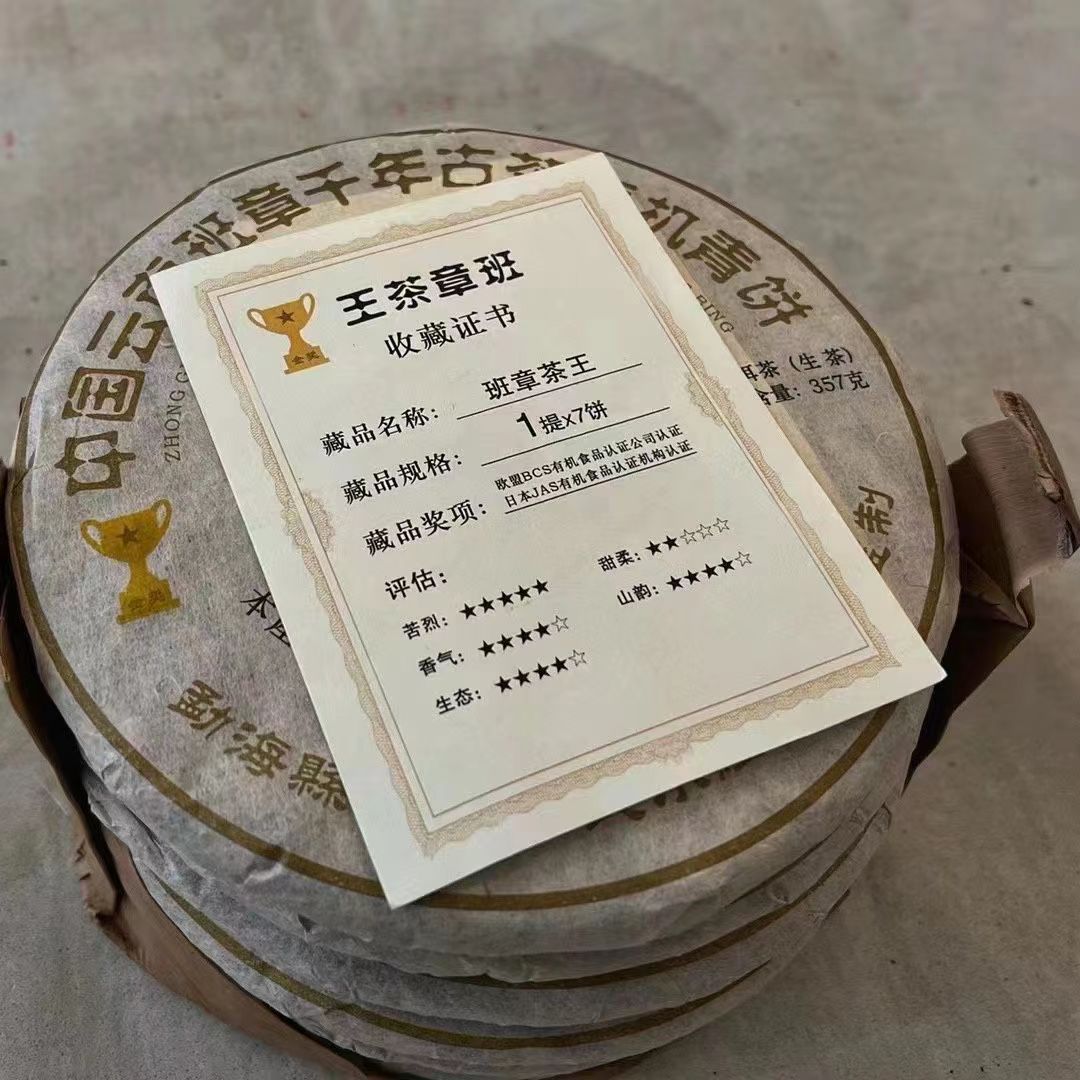 中国云南班章千年古
机青饼
ZHONG G
BING
茶（生茶）
含量：357克
制
金奖
本
勐海縣
王茶章班
收藏证书
金奖
藏品名称： 班章茶王
藏品规格： 1提x7饼
藏品奖项： 欧盟BCS有机食品认证公司认证
日本JAS有机食品认证机构认证
评估：
苦烈：★★★★★ 甜柔：★★☆☆☆
香气：★★★★☆ 山韵：★★★★☆
生态：★★★★☆